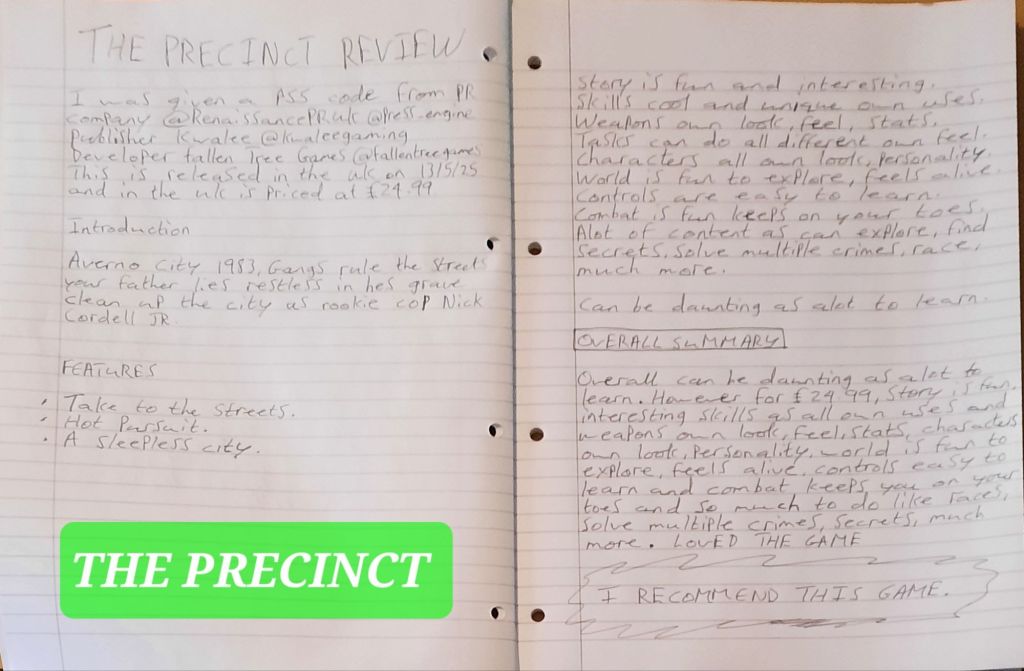 THE PRECINCT REVIEW
I was given a PS5 code from PR
company @RenaissancePRuk @press_engine
Publisher Kwalee @kwaleegaming
Developer fallen Tree Games @fallentreegames
This is released in the uk on 13/5/25
and in the uk is priced at £24.99
Introduction
Averno City 1983, Gangs rule the streets
your father lies restless in hes grave
clean up the city as rookie cop Nick
Cordell JR.
FEATURES
• Take to the streets.
• Hot Pursuit.
• A sleepless city.
THE PRECINCT
Story is fun and interesting.
Skills cool and unique own uses.
Weapons own look, feel, stats.
Tasks can do all different own feel.
characters all own look, personality.
World is fun to explore, feels alive.
Controls are easy to learn.
Combat is fun keeps on your toes.
Alot of content as can explore, find
secrets, solve multiple crimes, race,
much more.
Can be daunting as alot to learn.
OVERALL SUMMARY
Overall can be daunting as alot to
learn. However for £24.99, Story is fun,
interesting skills as all own uses and
weapons own look, feel, stats, characters
own look, personality. world is fun to
explore, feels alive. controls easy to
learn and combat keeps you on your
toes and so much to do like races,
solve multiple crimes, secrets, much
more. LOVED THE GAME
I RECOMMEND THIS GAME.